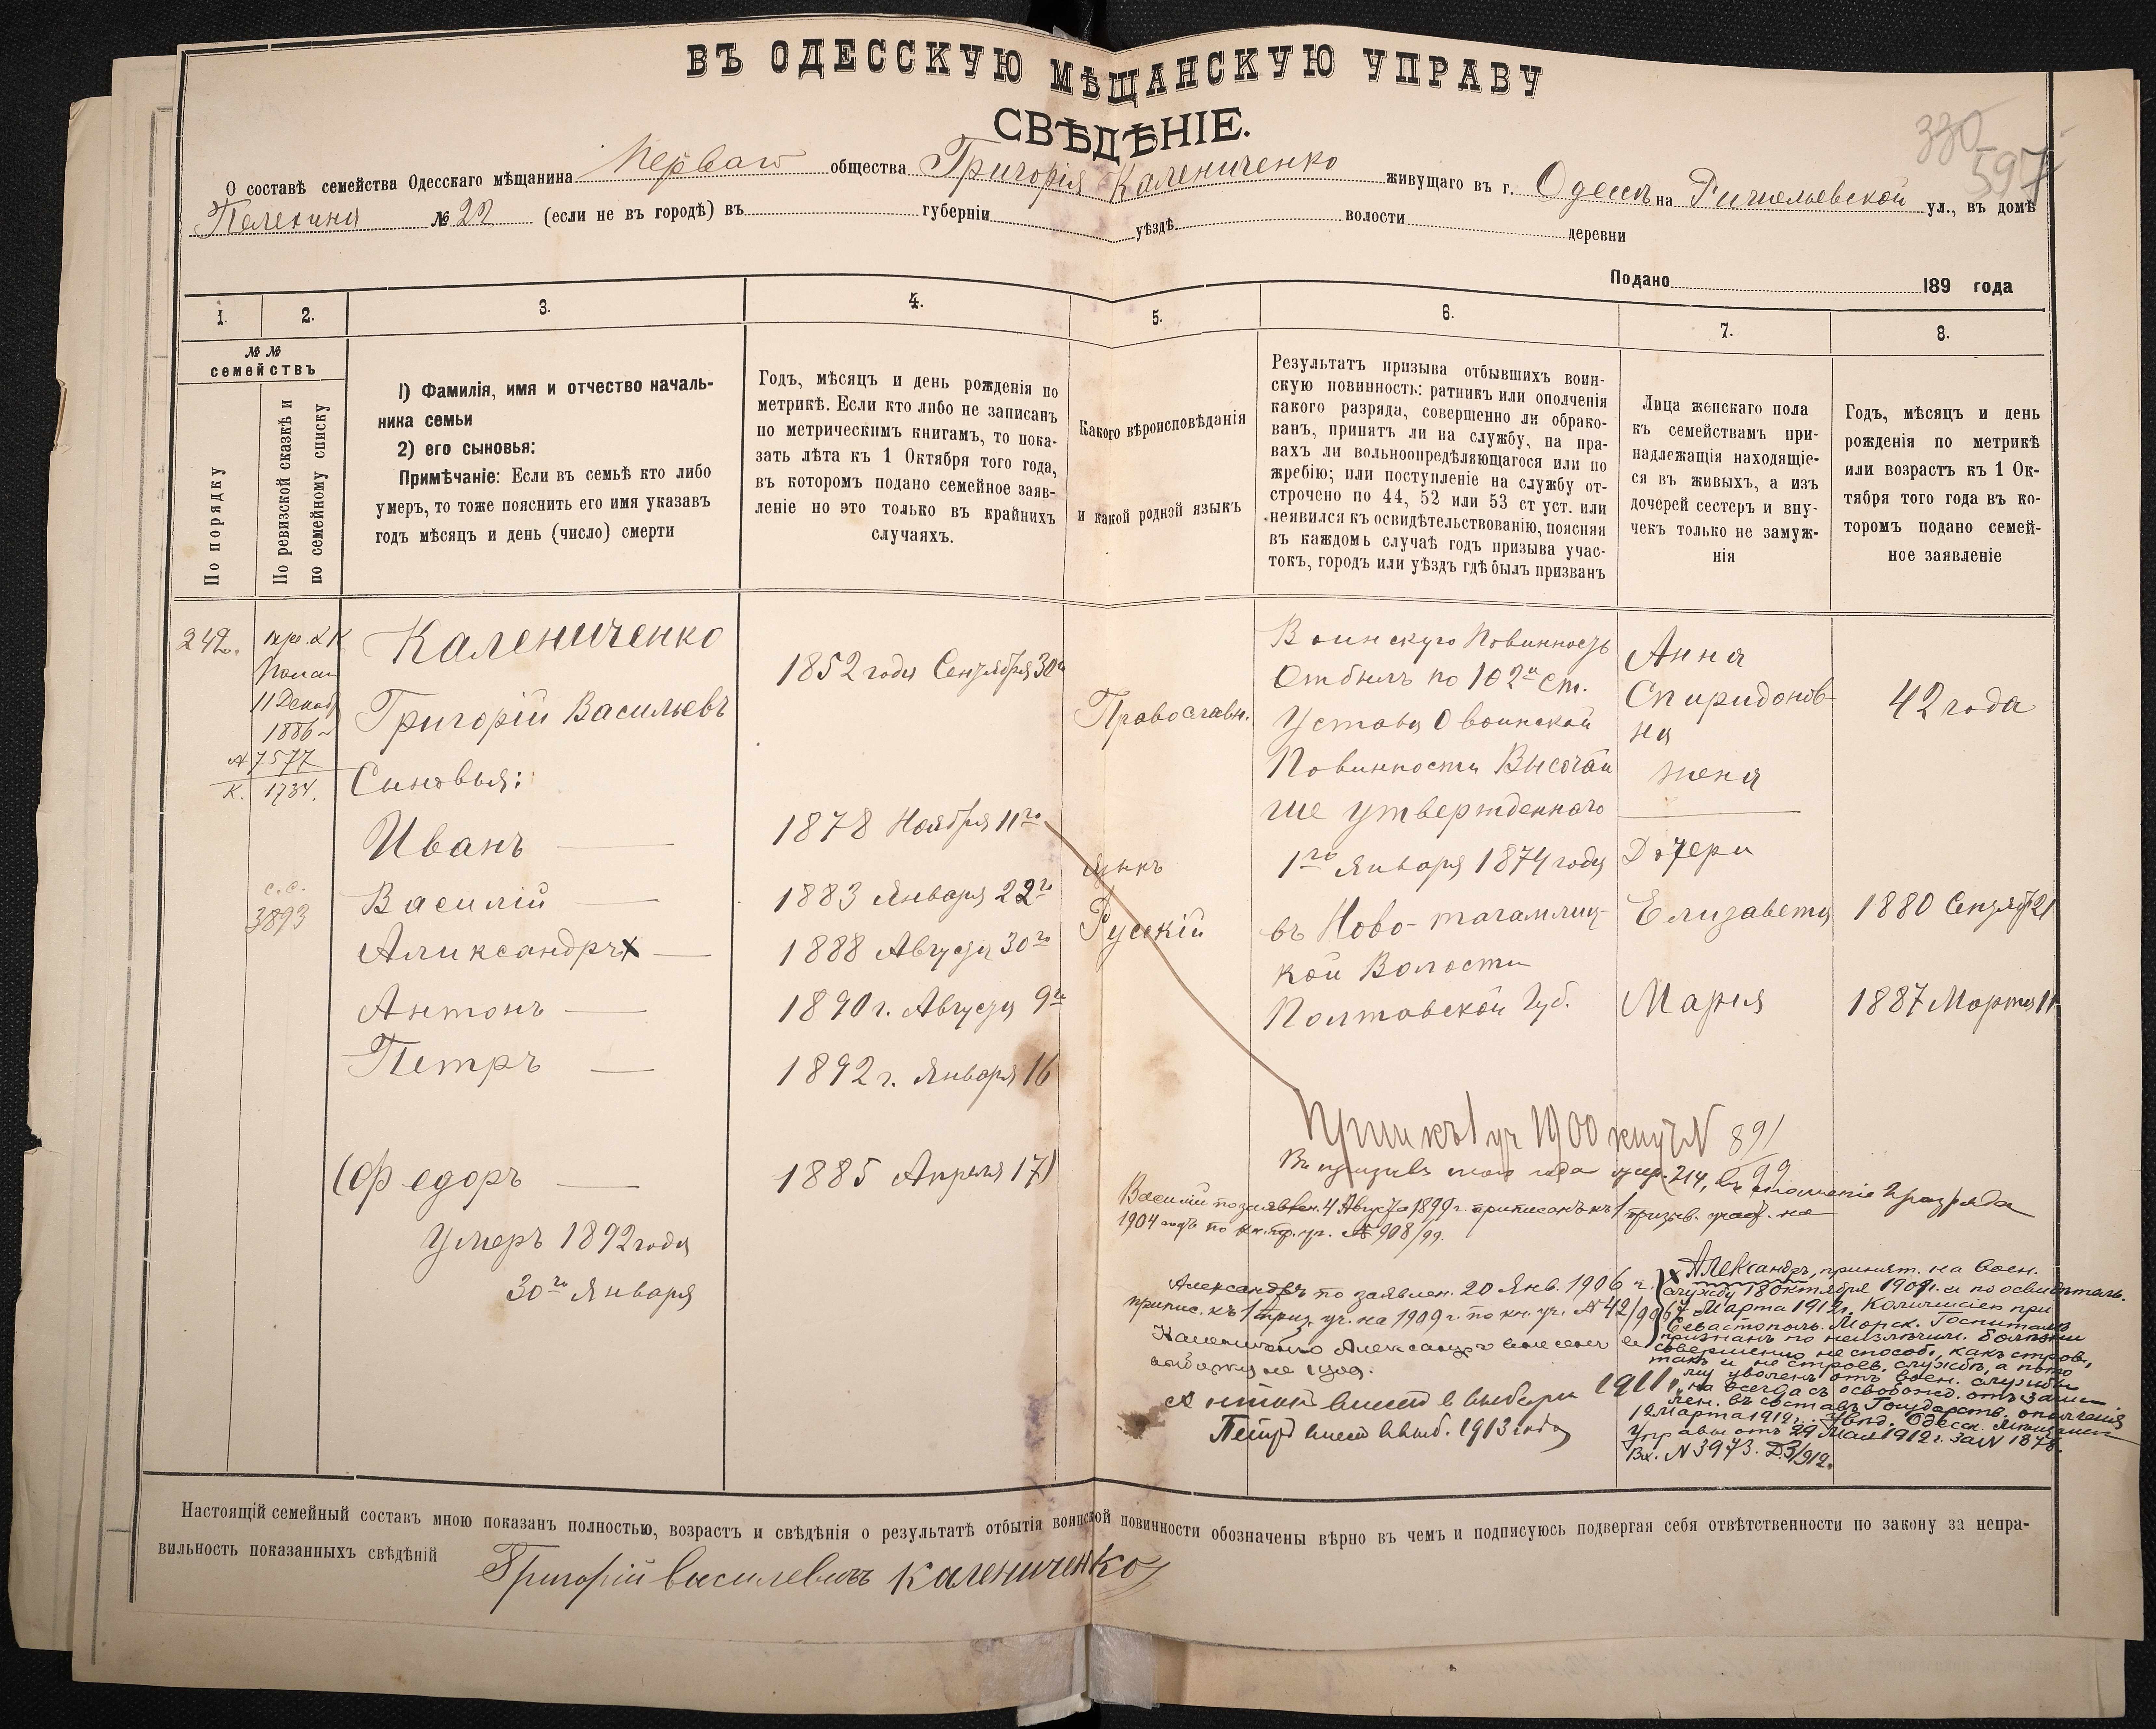 ВЪ ОДЕССКУЮ МѢЩАНСКУЮ УПРАВУ
СВѢДѢНІЕ.
330
597
О составѣ семейства Одесскаго мѣщанина Перваго общества Григорія Калениченко живущаго въ г. Одессѣ на Ришельевской ул., въ домѣ
№ 22 (если не въ городѣ) въ губерніи уѣздѣ волости деревни
Подано 189 года
1. 2. 3. 4. 5. 6. 7. 8.
№ № семействъ
По порядку
По ревизской сказкѣ и
по семейному списку
1) Фамилія, имя и отчество началь-
ника семьи
2) его сыновья:
Примѣчаніе: Если въ семьѣ кто либо
умеръ, то тоже пояснить его имя указавъ
годъ мѣсяцъ и день (число) смерти
Годъ, мѣсяцъ и день рожденія по
метрикѣ. Если кто либо не записанъ
по метрическимъ книгамъ, то пока-
зать лѣта къ 1 Октября того года,
въ которомъ подано семейное заяв-
леніе но это только въ крайнихъ
случаяхъ.
Какого вѣроисповѣданія
и какой родной языкъ
Результатъ призыва отбывшихъ воин-
скую повинность: ратникъ или ополченія
какого разряда, совершенно ли обрако-
ванъ, принятъ ли на службу, на пра-
вахъ ли вольноопредѣляющагося или по
жребію; или поступленіе на службу от-
строчено по 44, 52 или 53 ст уст. или
неявился къ освидѣтельствованію, поясняя
въ каждомъ случаѣ годъ призыва учас-
токъ, городъ или уѣздъ гдѣ былъ призванъ
Лица женскаго пола
къ семействамъ при-
надлежащія находящіе-
ся въ живыхъ, а изъ
дочерей сестеръ и вну-
чекъ только не замуж-
нія
Годъ, мѣсяцъ и день
рожденія по метрикѣ
или возрастъ къ 1 Ок-
тября того года въ ко-
торомъ подано семей-
ное заявленіе
242.
11 Декаб
1886
7577
К. 1734.
с.с.
3893
Калениченко
Григорій Васильевъ
Сыновья:
Иванъ
Василій
Аликсандръ X
Антонъ
Петръ
(Федоръ
Умеръ 1892 года
30го Января
1852 года Сентября 30го
1878 Ноября 11го
1883 Января 22го
1888 Августа 30го
1890 г. Августа 9го
1892 г. Января 16
1885 Апреля 17)
Православн.
Русскій
Воинскую Повинность
Отбылъ по 102й ст.
Устава О воинской
Повинности Высочай
ше утвержденного
1го Января 1874 года
въ Ново-
кой Волости
Полтавской Губ.
Анна
Спиридонов-
на
жена
Дочери
Елизавета
Мария
42 года
1880 Сентяб 21
1887 Марта 11
1900 891
99
Василій по заявлен. 4 Августа 1899 г. приписанъ къ 1 призыв. участ. на
1904 годъ по кн. пр. уч. № 908/99.
Александръ по заявлен. 20 Янв. 1906 г.
припис. къ 1 приз. уч. на 1909 г. по кн. уч. № 42/906
Калениченко Александръ внесенъ въ
Антонъ внесенъ в выборку 1911 г.
Петръ внесен в выб. 1913 года
X Александръ, принят. на воен.
службу 18 октября 1909 г. и по освидѣтель.
7 Марта 1912 г. Комиссіею при
Севастополь. Морск. Госпиталѣ
признанъ по неизлѣчим. болѣзни
совершенно не способ., какъ строев.,
такъ и не строев. службѣ, а пото
му уволенъ отъ воен. службы
на всегда съ освобожд. отъ зачис
лен. въ составъ Государств. ополченія
12 Марта 1912 г. Увѣд. Одесск. Мѣщанск
Управы отъ 29 Мая 1912 г. за № 1878.
Вх. № 3973. Д.3/912.
Настоящій семейный составъ мною показанъ полностью, возрастъ и свѣдѣнія о результатѣ отбытія воинской повинности обозначены вѣрно въ чемъ и подписуюсь подвергая себя отвѣтственности по закону за непра-
вильность показанныхъ свѣдѣній
Григорій василевичъ калениченко